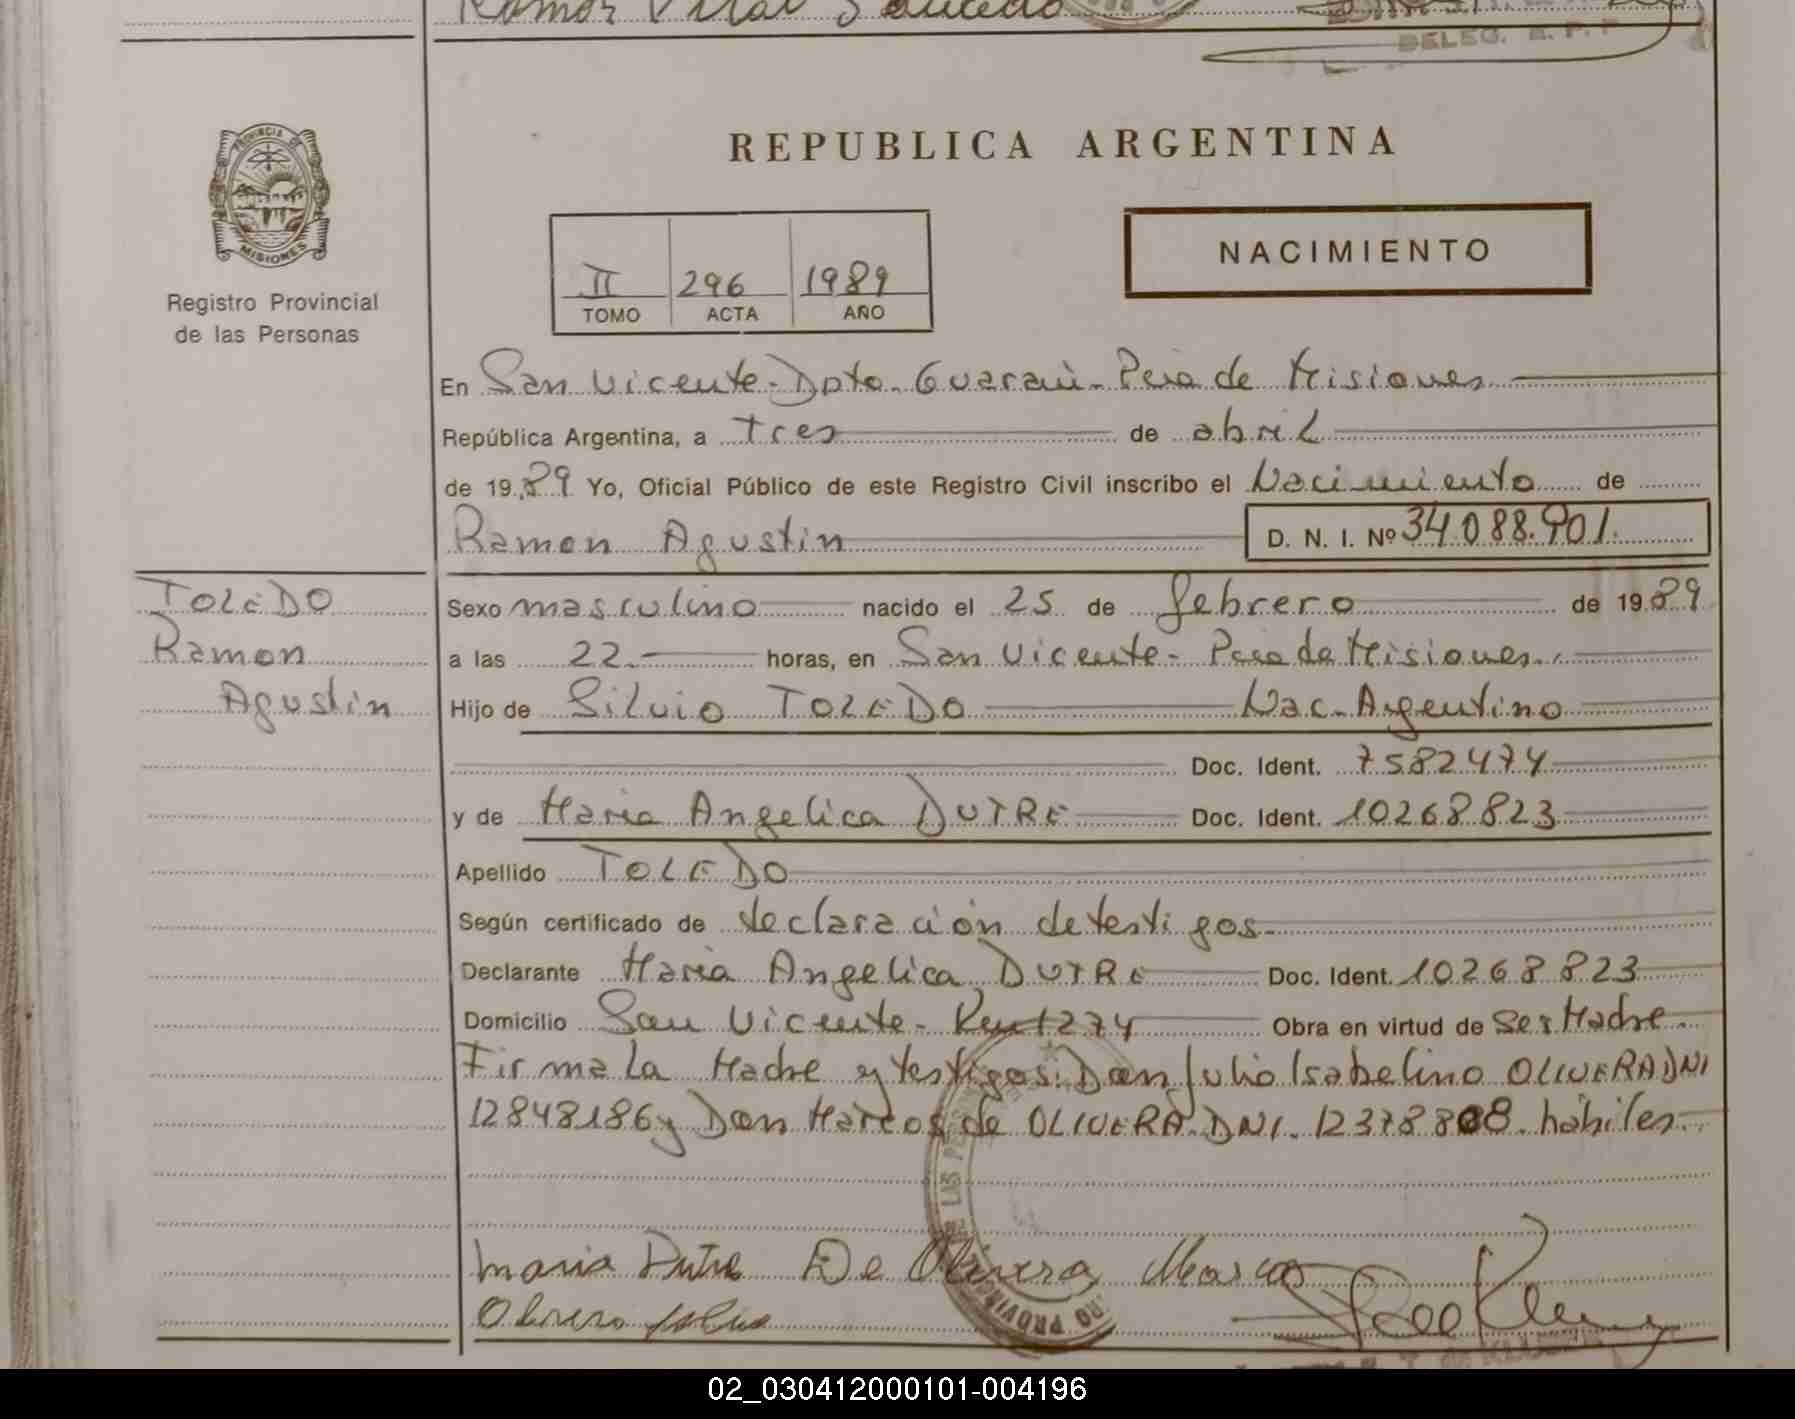 Ramon Vital Saucedo
DELEG. R. P. P
PROVINCIA DE
MISIONES
REPUBLICA ARGENTINA
NACIMIENTO
II 296 1989
TOMO ACTA AÑO
Registro Provincial
de las Personas
En San Vicente - Dpto. Guaraní - Pcia de Misiones
República Argentina, a tres de abril
de 1989 Yo, Oficial Público de este Registro Civil inscribo el Nacimiento de
Ramon Agustin D. N. I. Nº 34.088.901.
TOLEDO
Ramon
Agustin
Sexo masculino nacido el 25 de febrero de 1989
a las 22.- horas, en San Vicente - Pcia de Misiones.
Hijo de Silvio TOLEDO Nac. Argentino
Doc. Ident. 7582474
y de Maria Angelica DUTRE Doc. Ident. 10268823
Apellido TOLEDO
Según certificado de declaración de testigos
Declarante Maria Angelica DUTRE Doc. Ident. 10268823
Domicilio San Vicente - Km 1274 Obra en virtud de ser Madre
Firma la Madre y testigos: Don Julio Isabelino OLIVERA DNI
12848186 y Don Marcos de OLIVERA. DNI. 12378808. hábiles.
Maria Dutre De Olivera Marcos
Olivera Julio
02_030412000101-004196